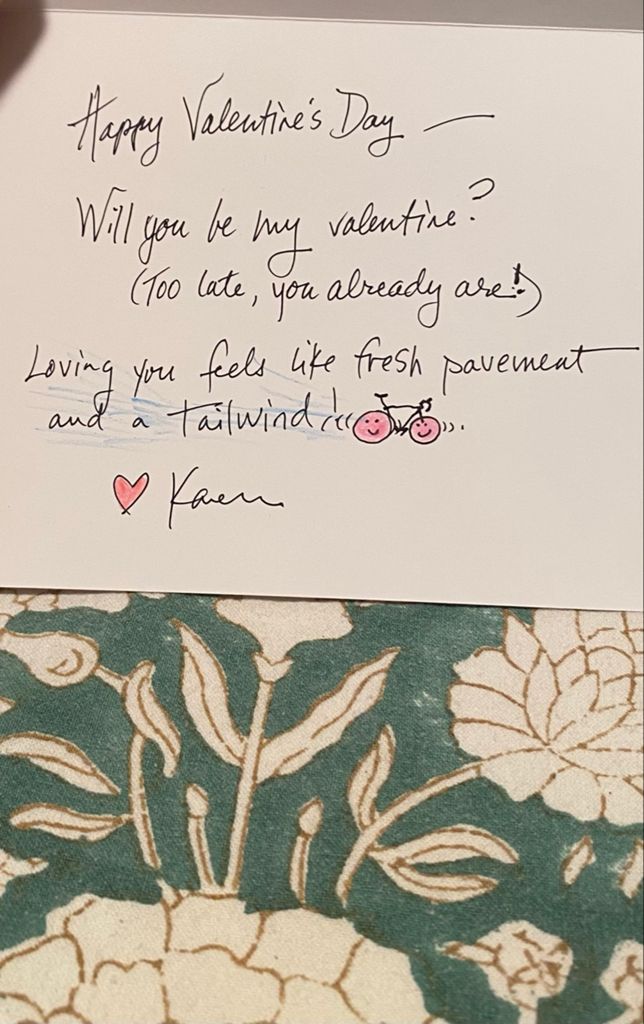 Happy Valentine's Day —
Will you be my valentine?
(Too late, you already are!)
Loving you feels like fresh pavement
and a tailwind!
Karen